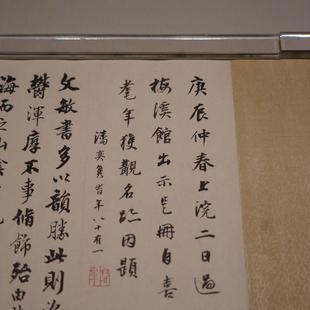 庚辰仲春上浣二日過
梅溪館出示是冊自喜
耄年獲觀名跡因題
潘奕隽時年八十有一
文敏書多以韻勝此則
鬱渾厚不事脩飾殆由
海而之山陰